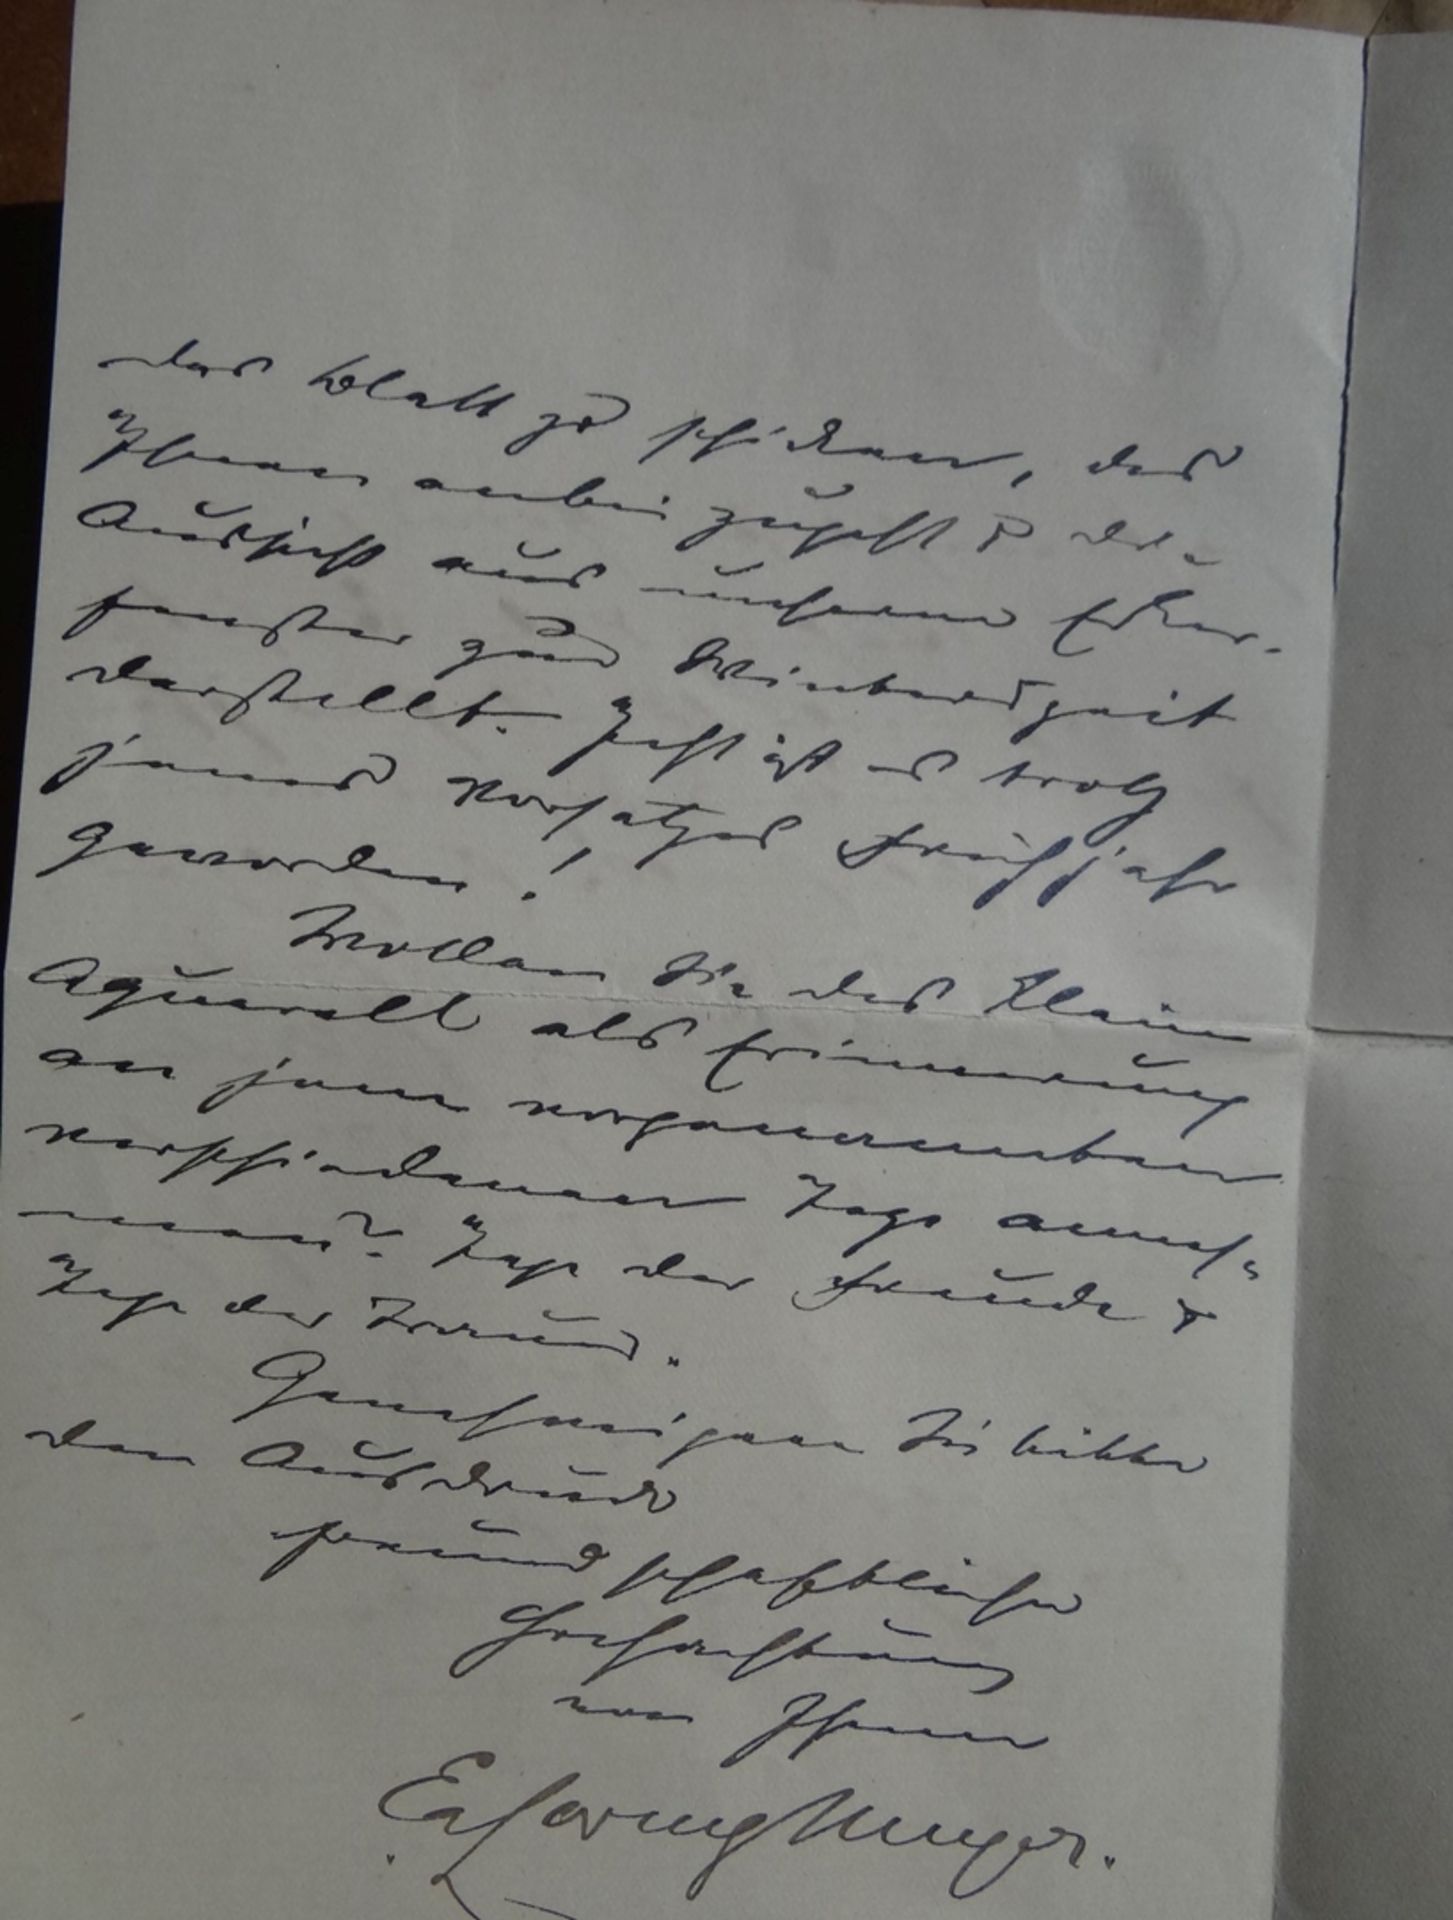 das Blatt zu schicken, das
Ihnen anbei zugeht & die
Aussicht aus unserem Erker-
fenster zur Winterszeit
darstellt. Jetzt ist es trotz
jenes Vorsatzes Frühjahr
geworden!
Wollen Sie das kleine
Aquarell als Erinnerung
an jene vorgenannten
verschiedenen Tage anneh-
men? Tage der Freude &
Tage der Trauer.
Genehmigen Sie bitte
den Ausdruck
freundschaftlicher
Hochachtung
von Ihrem